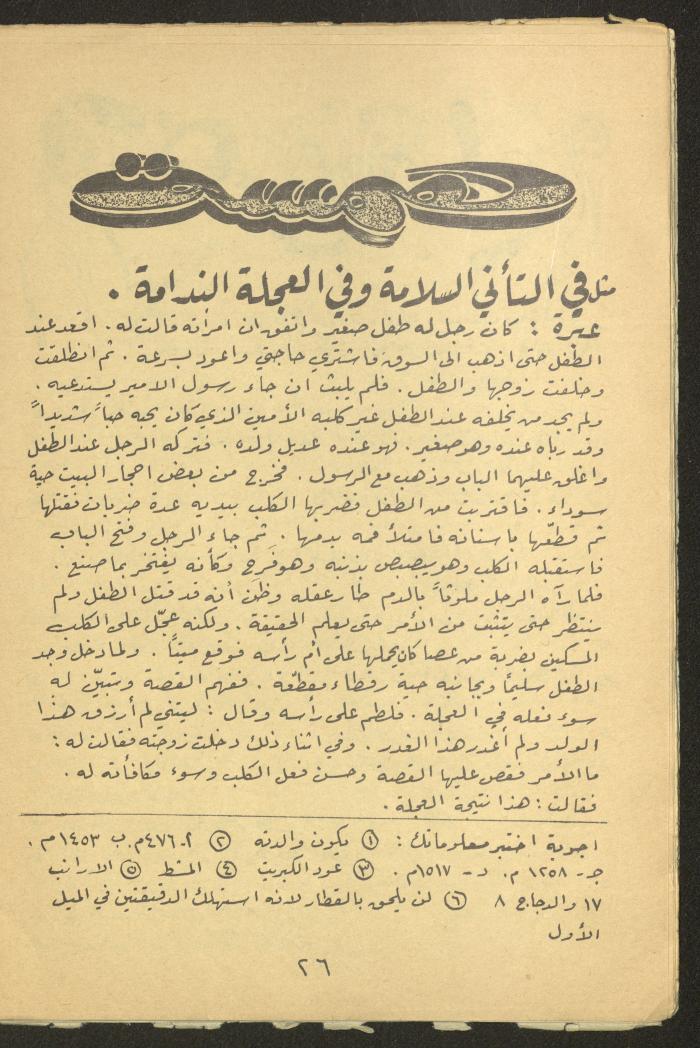 همسة
مثل في التأني السلامة وفي العجلة الندامة .
عبرة : كان رجل له طفل صغير واتفق ان امرأته قالت له . اقعد عند
الطفل حتى اذهب الى السوق فاشتري حاجتي واعود بسرعة . ثم انطلقت
وخلفت زوجها والطفل . فلم يلبث ان جاء رسول الامير يستدعيه .
ولم يجد من يخلفه عند الطفل غير كلبه الأمين الذي كان يحبه حباً شديداً
وقد رباه عنده وهو صغير . فهو عنده عديل ولده . فتركه الرجل عند الطفل
واغلق عليهما الباب وذهب مع الرسول . فخرج من بعض احجار البيت حية
سوداء . فاقتربت من الطفل فضربها الكلب بيديه عدة ضربات فقتلها
ثم قطّعها باسنانه فامتلأ فمه بدمها . ثم جاء الرجل وفتح الباب
فاستقبله الكلب وهو يبصبص بذنبه وهو فَرِح وكأنه يفتخر بما صنع .
فلما رآه الرجل ملوثاً بالدم طار عقله وظن أنه قد قتل الطفل ولم
ينتظر حتى يتثبت من الأمر حتى يعلم الحقيقة . ولكنه عجّل على الكلب
المسكين بضربة من عصا كان يحملها على أم رأسه فوقع ميتاً . ولما دخل وجد
الطفل سليماً وبجانبه حية رقطاء مقطّعة . ففهم القصة وتبيّن له
سوء فعله في العجلة . فلطم على رأسه وقال : ليتني لم أرزق هذا
الولد ولم أغدر هذا الغدر . وفي اثناء ذلك دخلت زوجته فقالت له :
ما الأمر فقص عليها القصة وحسن فعل الكلب وسوء مكافأته له .
فقالت : هذا نتيجة العجلة .
اجوبة اختبر معلوماتك : ① يكون والدته ② أ - ٤٧٦ م . ب ١٤٥٣ م .
جـ - ١٢٥٨ م . د - ١٥١٧ م . ③ عود الكبريت ④ المشط ⑤ الارانب
١٧ والدجاج ٨ ⑥ لن يلحق بالقطار لانه استهلك الدقيقتين في الميل
الأول
٢٦